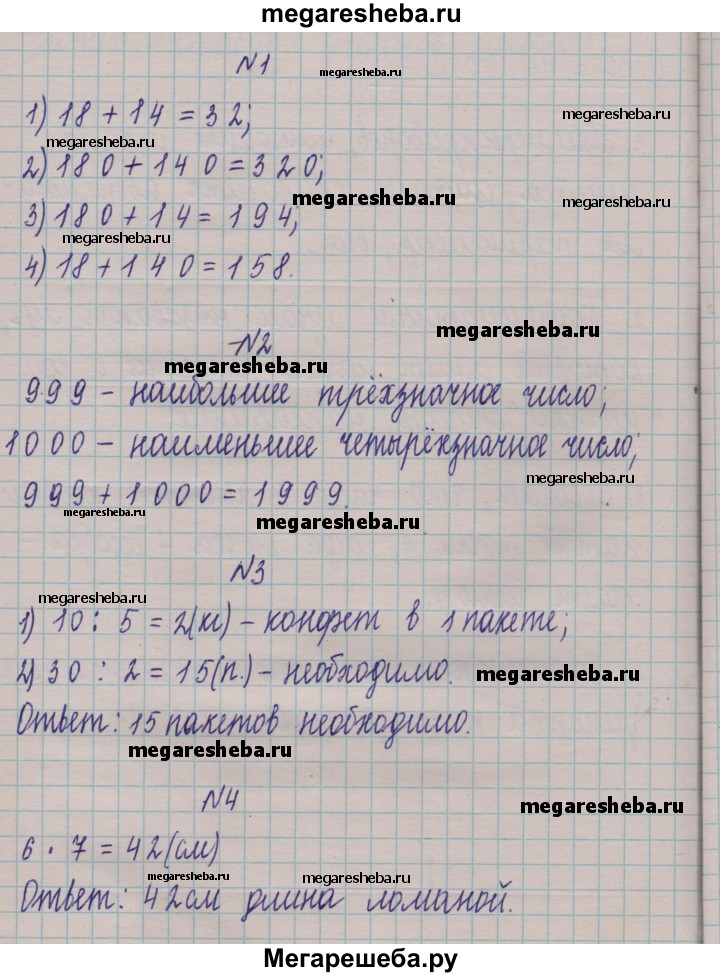 megaresheba.ru
N1 megaresheba.ru
1) 18 + 14 = 32; megaresheba.ru
megaresheba.ru
2) 180 + 140 = 320;
megaresheba.ru
3) 180 + 14 = 194;
megaresheba.ru
4) 18 + 140 = 158.
megaresheba.ru
N2
megaresheba.ru
999 – наибольшее трёхзначное число;
1000 – наименьшее четырёхзначное число;
megaresheba.ru
999 + 1000 = 1999.
megaresheba.ru
megaresheba.ru
N3
megaresheba.ru
1) 10 : 5 = 2(кг) – конфет в 1 пакете;
2) 30 : 2 = 15(п.) – необходимо. megaresheba.ru
Ответ: 15 пакетов необходимо.
megaresheba.ru
N4
megaresheba.ru
6 · 7 = 42(см)
megaresheba.ru
megaresheba.ru
Ответ: 42см длина ломаной.
Мегарешеба.ру